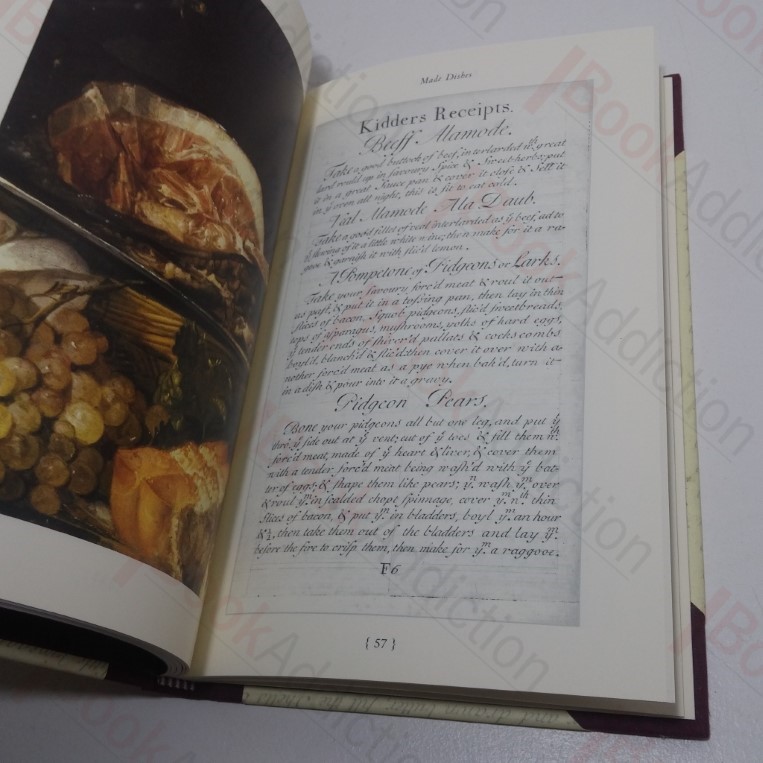 Made Dishes
Kidders Receipts.
Beeff Alamode.
Take a good buttock of beef, interlarded wth. great
lard rould up in savoury spice & sweet-herbs; put
it in a great sauce pan & cover it close & sett it
in ye oven all night, this is fit to eat cold.
Veal Alamode Ala Daub.
Take a good fillet of veal interlarded as ye beef, ad to
stewing of it a little white wine; then make for it a ra-
gooe & garnish it with slic'd lemon.
A Pompetone of Pidgeons or Larks.
Take your savoury forc'd meat & roul it out
as past, & put it in a tossing pan, then lay in thin
slices of bacon, squob pidgeons, slic'd sweetbreads,
tops of asparagus, mushrooms, yolks of hard eggs,
ye tender ends of shiver'd pallats & cocks combs
boyl'd, blanch'd & slic'd: then cover it over with a-
nother forc'd meat as a pye when bak'd, turn it
in a dish & pour into it a gravy.
Pidgeon Pears.
Bone your pidgeons all but one leg, and put yt
thro' ye side out at ye vent; cut of ye toes & fill them wth.
forc'd meat, made of ye heart & liver, & cover them
with a tender forc'd meat being wash'd with ye bat-
ter of eggs; & shape them like pears; yn wash ym over
& roul ym in scalded chopt spinnage, cover ym wth thin
slices of bacon, & put ym in bladders, boyl ym an hour
& ½, then take them out of the bladders and lay ym
before the fire to crisp them, then make for ym a raggooe.
F6
{ 57 }
BookAddiction